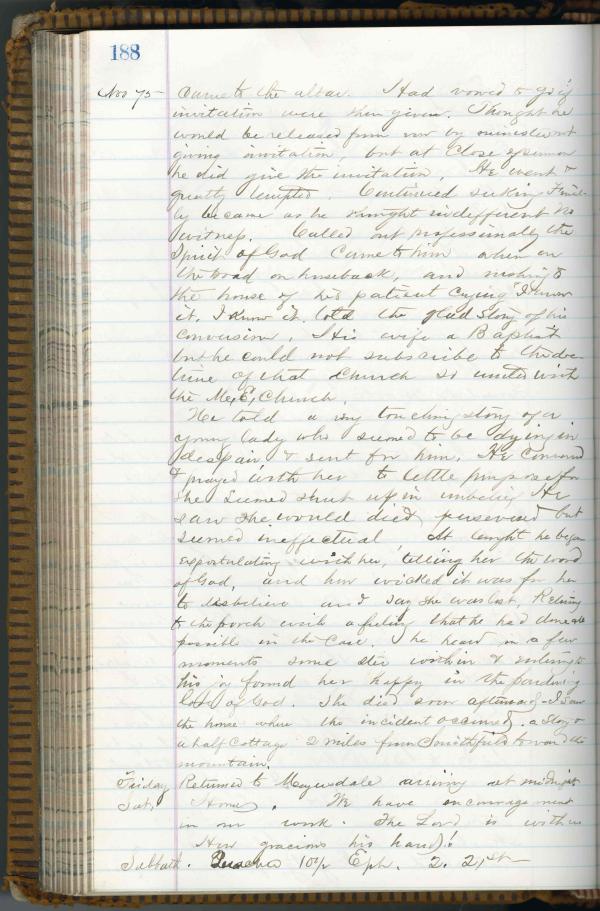 188
Nov 75 came to the altar. Had vowed to go if
invitation were then given. Thought he
would be released from vow by minister not
giving invitation, but at close of sermon
he did give the invitation. He went &
greatly tempted. Continued seeking Final-
ly became as he thought indifferent No
witness. Called out professionally the
Spirit of God came to him when on
the road on horseback, and rushing to
the house of his patient crying "I know
it, I know it told the glad story of his
conversion. His wife a Baptist
but he could not subscribe to the doc-
trine of that church so united with
the M.E. Church.
He told a very touching story of a
young lady who seemed to be dying in
despair & sent for him. He conversed
& prayed with her to little purpose for
she seemed shut up in unbelief. He
saw she would die persevered but
seemed ineffectual At length he began
expostulating with her, telling her the word
of God, and how wicked it was for her
to disbelieve and say she was lost. Retiring
to the porch with a feeling that he had done all
possible in the case. he heard in a few
moments some stir within & entering to
his joy found her happy in the pardoning
love of God. She died soon afterward. I saw
the house where the incident occurred, a story &
a half cottage 2 miles from Smithfield toward the
mountain.
Friday Returned to Meyersdale arriving at midnight
Sat. Home. We have encouragement
in our work. The Lord is with us
How gracious his hand!
Sabbath. 10½ Eph. 2. 21st